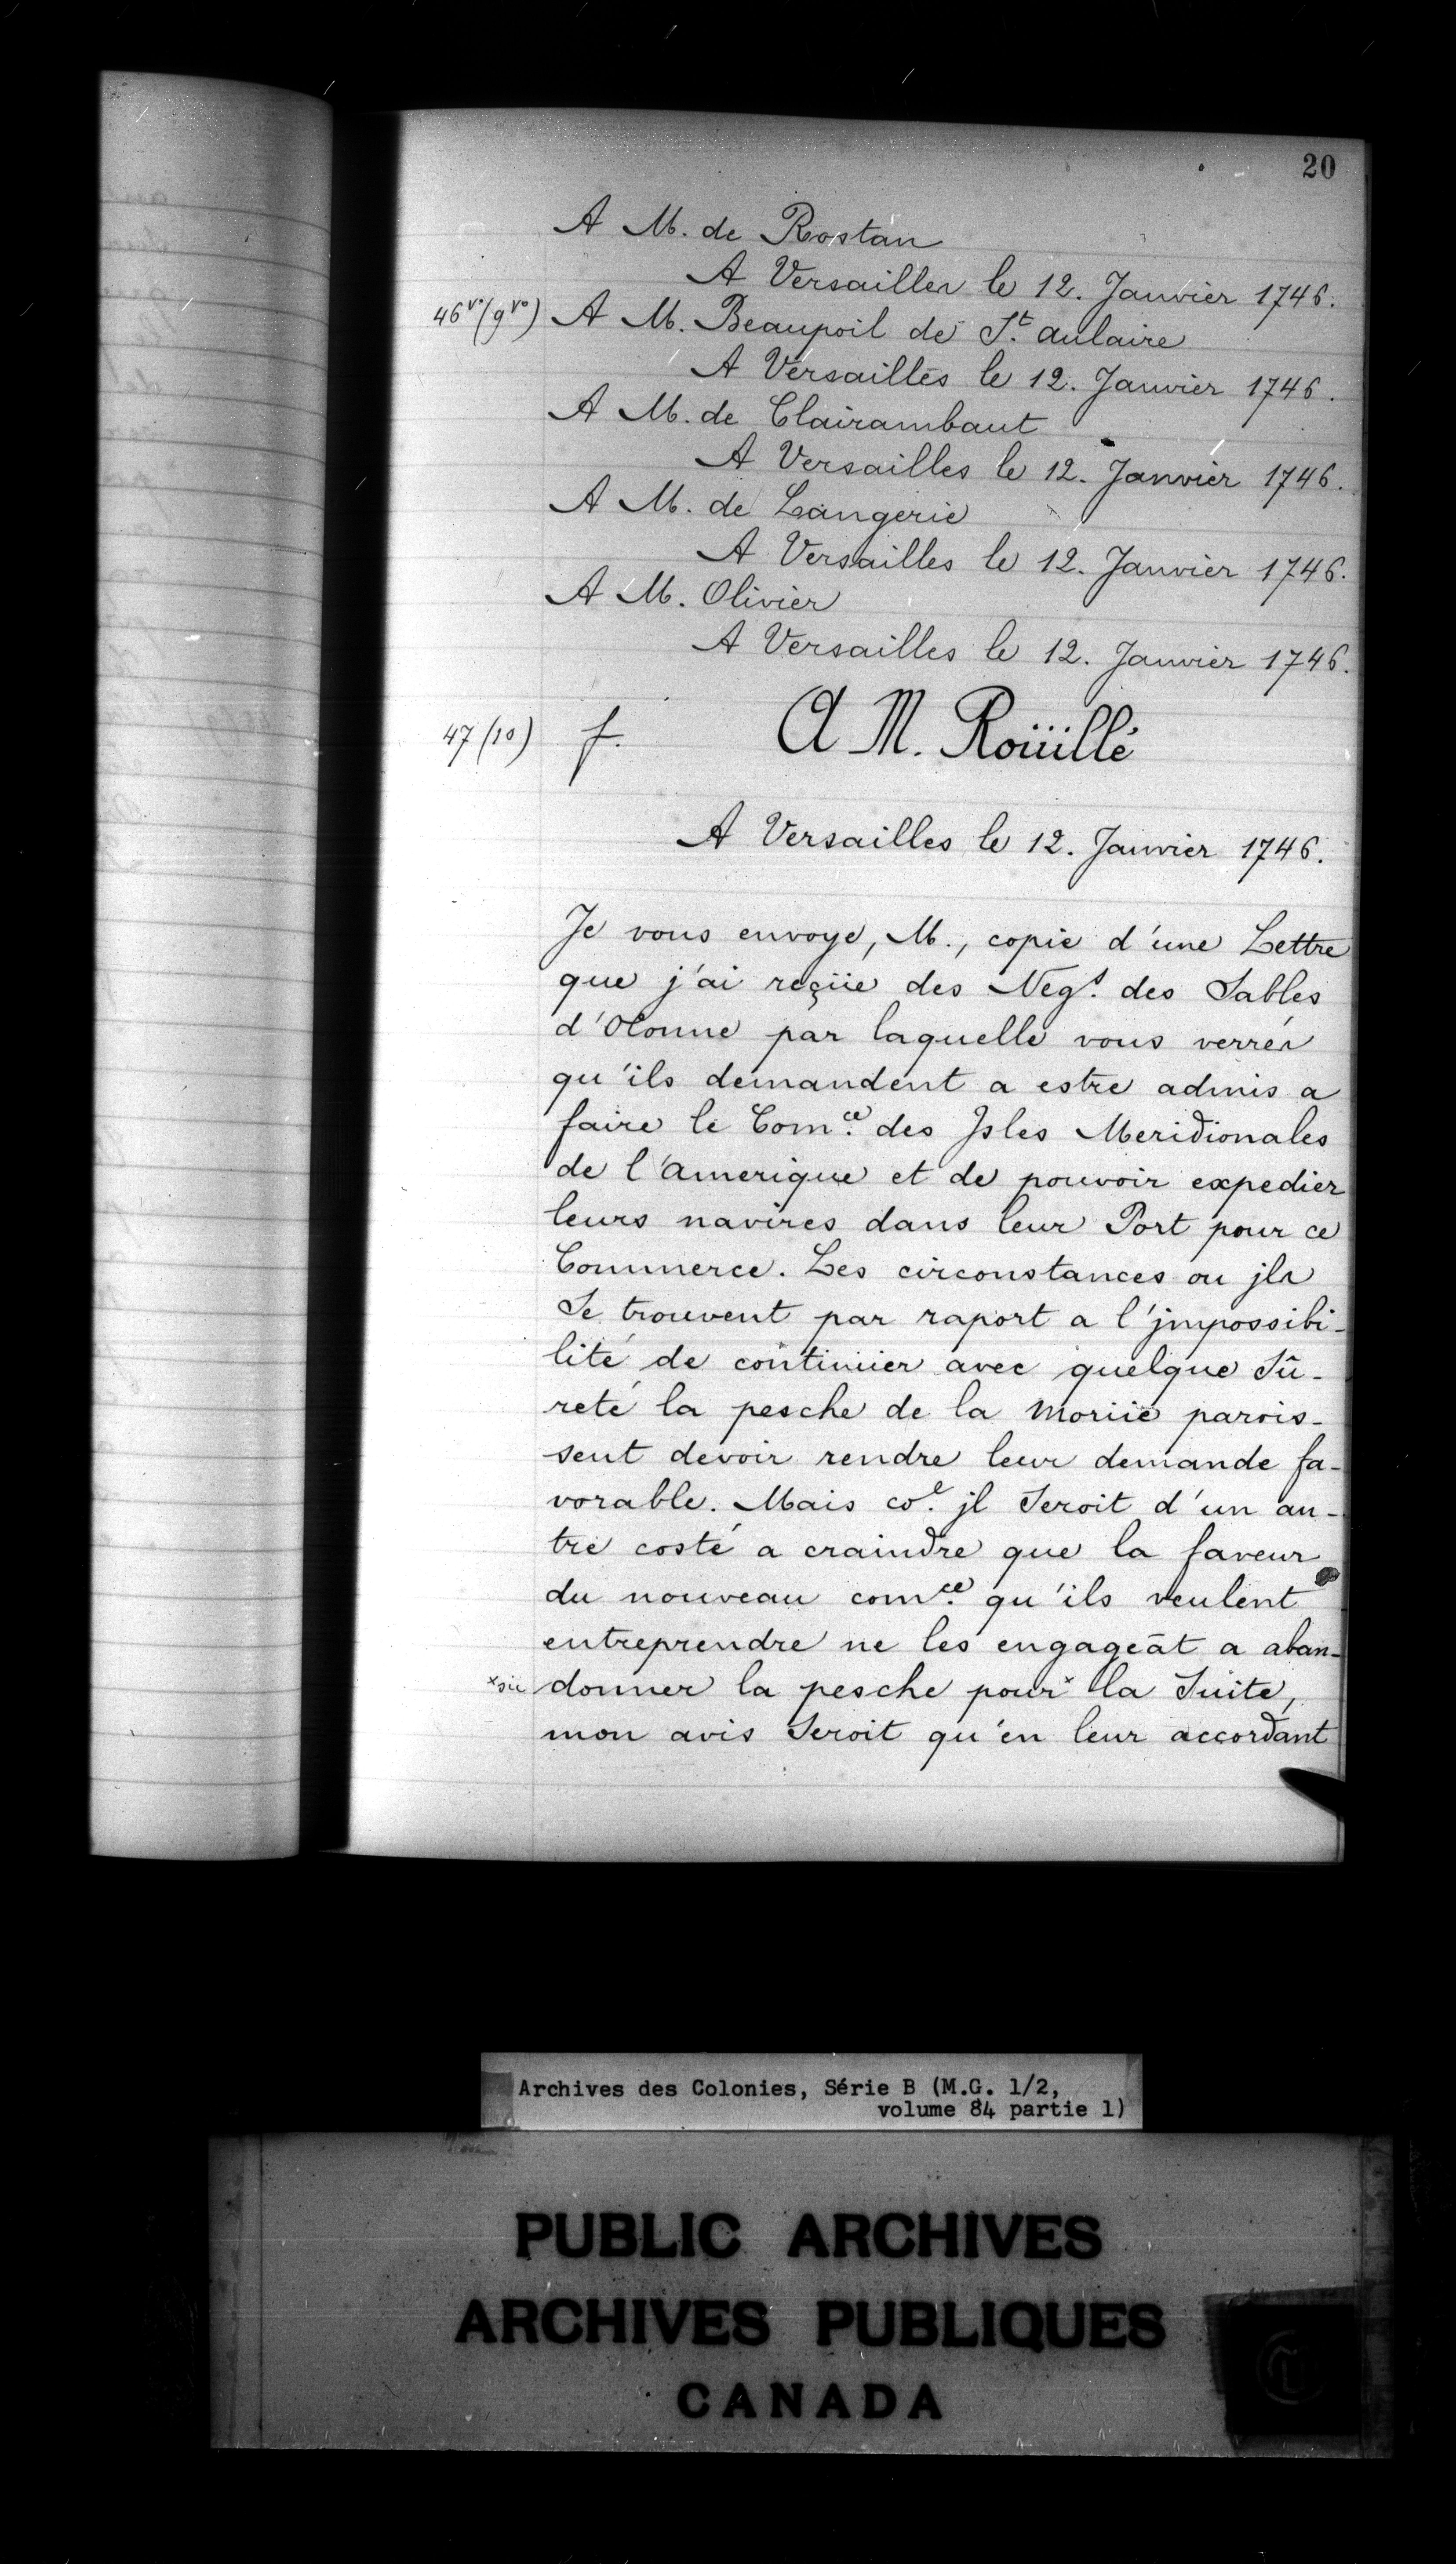 20
A M. de Rostan
A Versailles le 12. Janvier 1746.
46 vº (9 vº) A M. Beaupoil de St. aulaire
A Versailles le 12. Janvier 1746.
A M. de Clairambaut
A Versailles le 12. Janvier 1746.
A M. de Langerie
A Versailles le 12. Janvier 1746.
A M. Olivier
A Versailles le 12. Janvier 1746.
47 (10) f. A M. Roüillé
A Versailles le 12. Janvier 1746.
Je vous envoye, M., copie d'une Lettre
que j'ai reçüe des Negs. des Sables
d'Olonne par laquelle vous verrés
qu'ils demandent a estre admis a
faire le Comce. des Isles Meridionales
de l'amerique et de pouvoir expedier
leurs navires dans leur Port pour ce
Commerce. Les circonstances ou jls
Se trouvent par raport a l'jmpossibi-
lité de continüer avec quelque Sû-
reté la pesche de la Moriie parois-
sent devoir rendre leur demande fa-
vorable. Mais coe. jl Seroit d'un au-
tre costé a craindre que la faveur
du nouveau comce. qu'ils veulent
entreprendre ne les engageât a aban-
x sic donner la pesche pour x la Suite,
mon avis Seroit qu'en leur accordant
Archives des Colonies, Série B (M.G. 1/2,
volume 84 partie 1)
PUBLIC ARCHIVES
ARCHIVES PUBLIQUES
CANADA